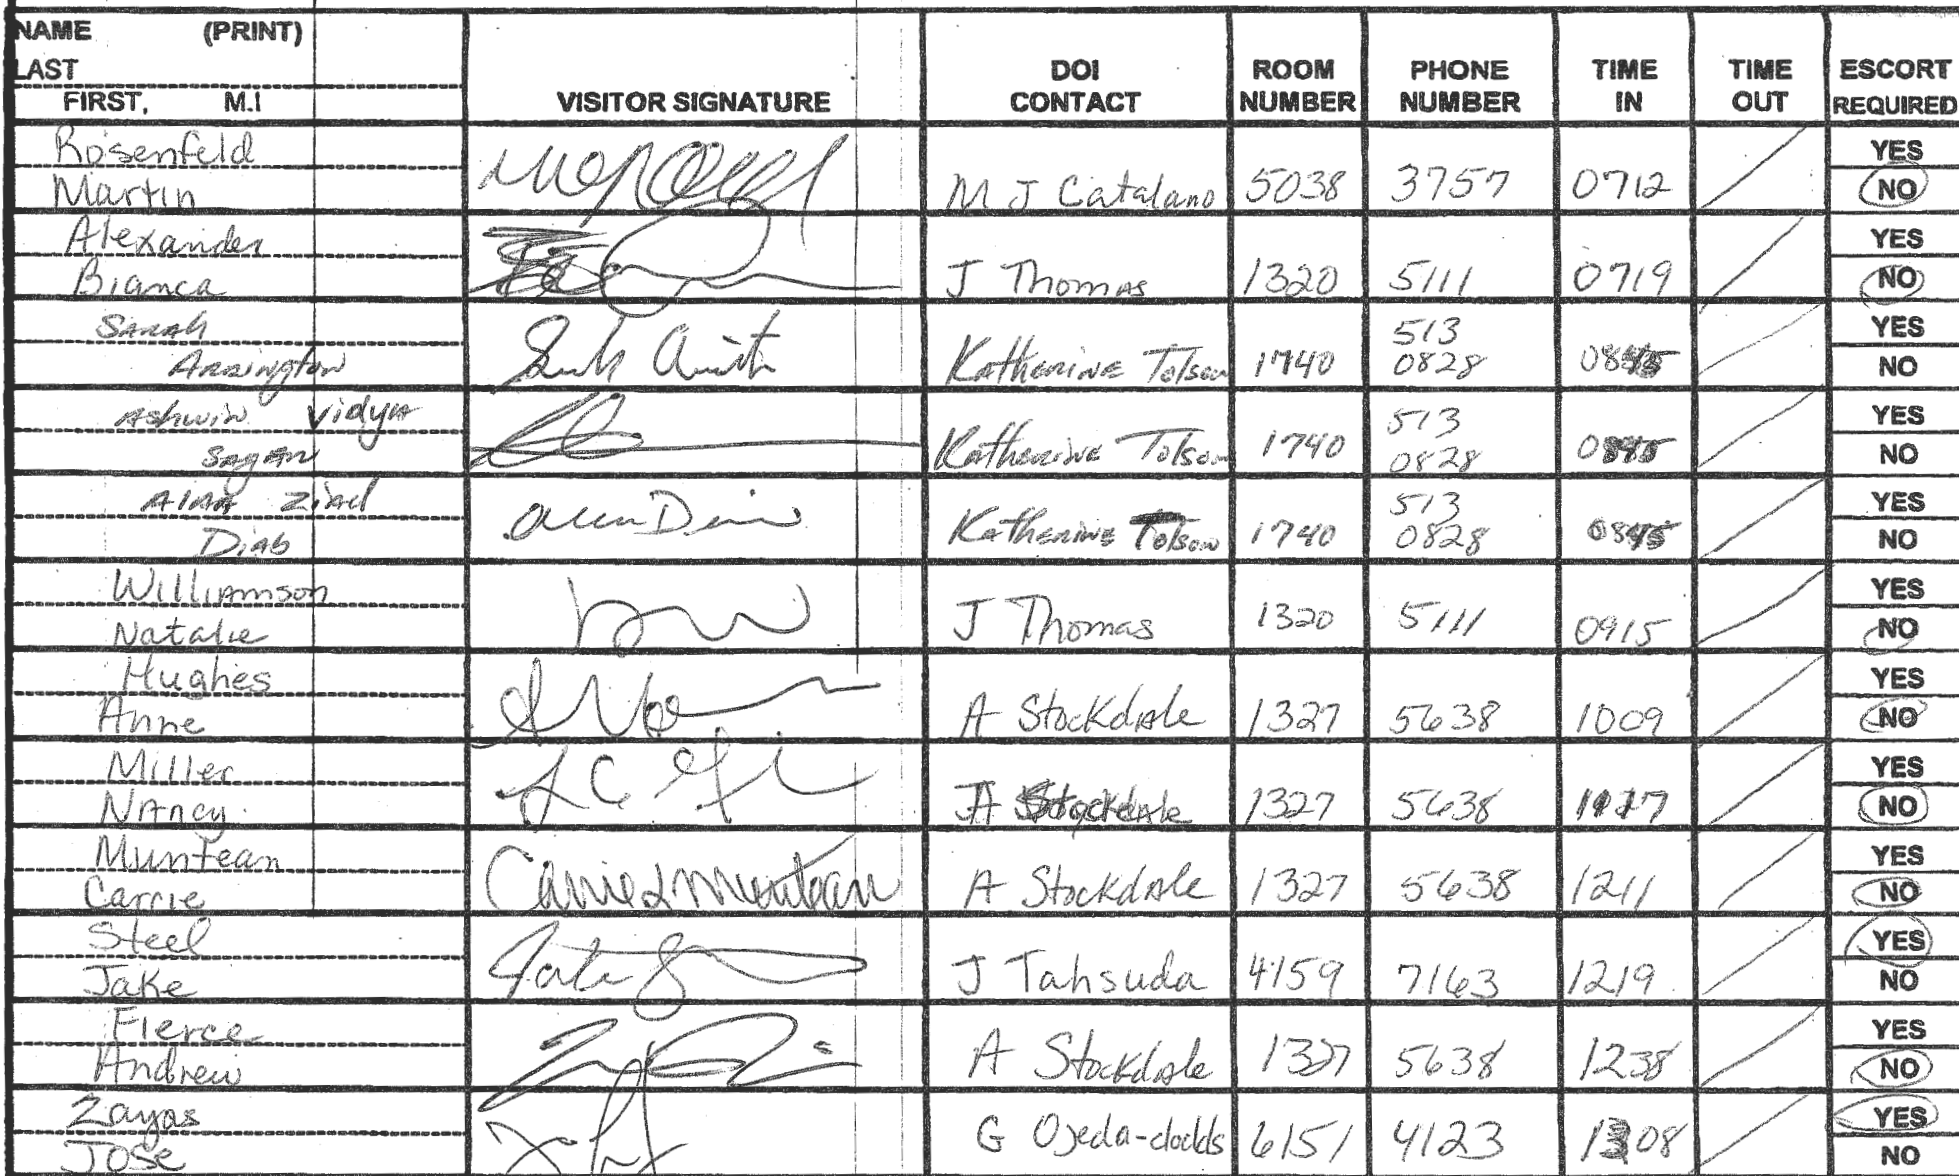 NAME (PRINT)
LAST
FIRST, M.I
VISITOR SIGNATURE
DOI CONTACT
ROOM NUMBER
PHONE NUMBER
TIME IN
TIME OUT
ESCORT REQUIRED
Rosenfeld YES
Martin M J Catalano 5038 3757 0712 NO
Alexander YES
Bianca J Thomas 1320 5111 0719 NO
Sarah 513 YES
Arrington Katherine Tolson 1740 0828 0845 NO
Ashwin Vidya 513 YES
Sagan Katherine Tolson 1740 0828 0845 NO
Alaa Ziad 513 YES
Diab Katherine Tolson 1740 0828 0845 NO
Williamson YES
Natalie J Thomas 1320 5111 0915 NO
Hughes YES
Anne A Stockdale 1327 5638 1009 NO
Miller YES
Nancy A Stockdale 1327 5638 NO
Muntean YES
Carrie Carrie Muntean A Stockdale 1327 5638 1211 NO
Steel YES
Jake J Tahsuda 4159 7163 1219 NO
Fierce YES
Andrew A Stockdale 1327 5638 1238 NO
Zayas YES
Jose G Ojeda-dodds 6151 4123 1308 NO